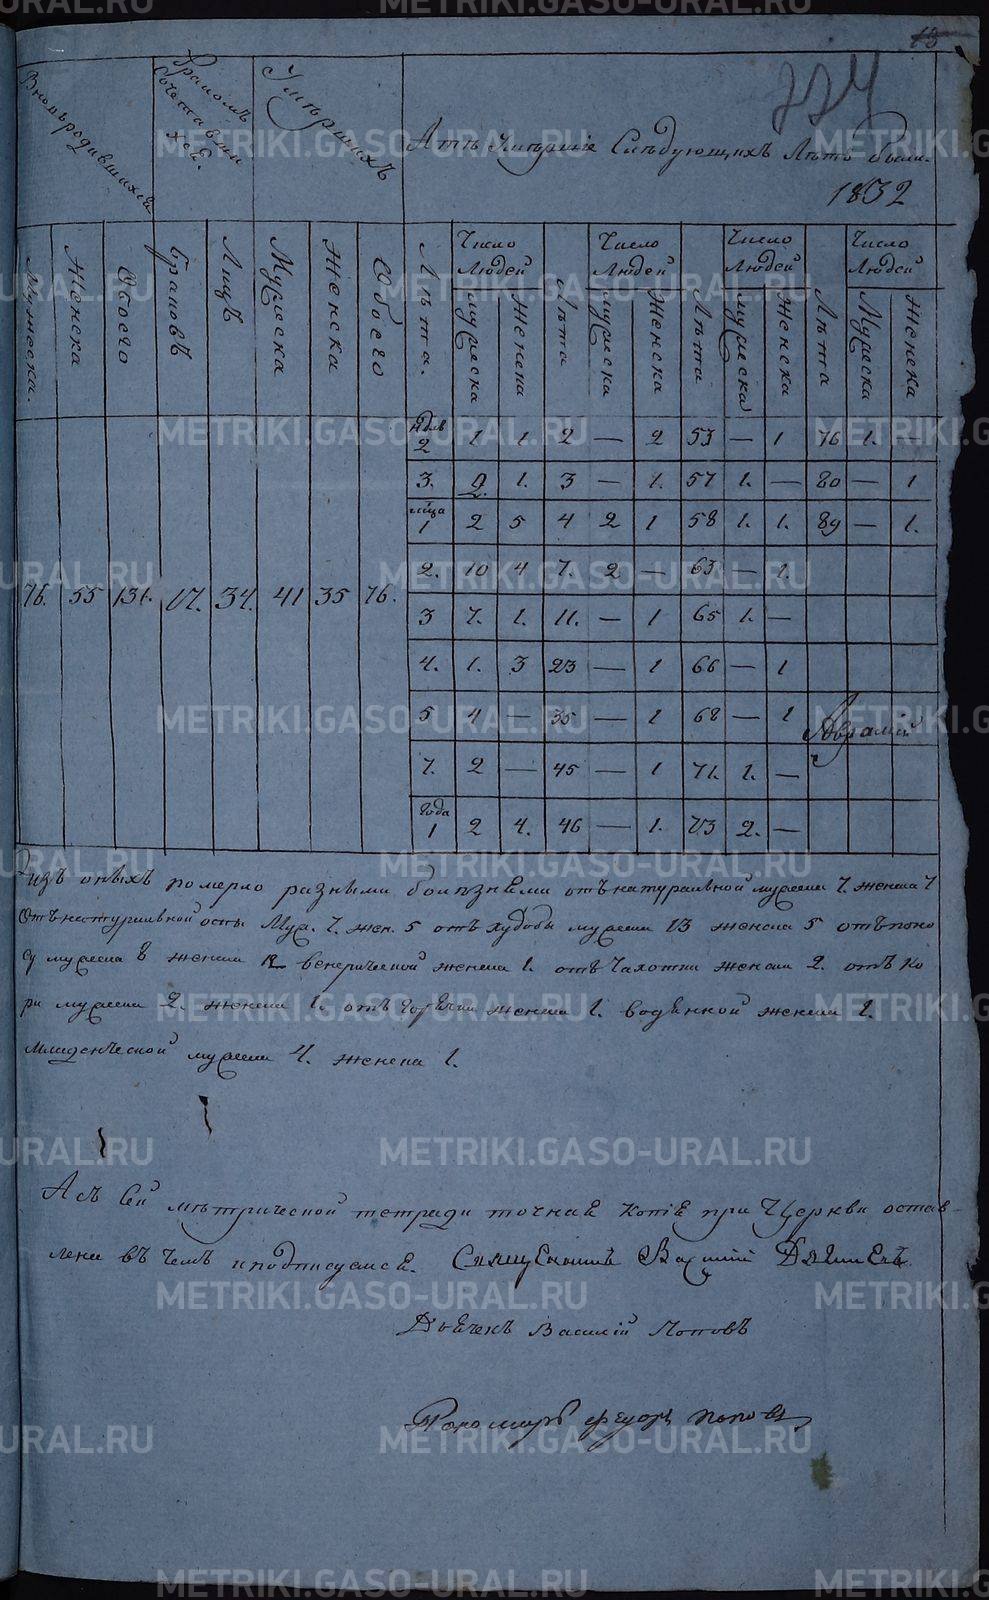 13
224
Вновьродившихся
Бракомъ сочетавшихся
Умершихъ
А тѣ Умершіе Слѣдующихъ Лѣтъ были.
1832
Мужеска.
Женска
Обоего
Браковъ
Лицъ
Мужеска
Женска
Обоего
Лѣта.
Число Людей
Лѣта
Число Людей
Лѣта
Число Людей
Лѣта
Число Людей
Мужеска
Женска
Мужеска
Женска
Мужеска
Женска
Мужеска
Женска
2 1 1. 2 — 2 53 — 1 76 1. —
3. 2. 1. 3 — 1. 57 1. — 80 — 1
1 2 5 4 2 1 58 1. 1. 89 — 1.
2. 10 4 7. 2 — 63 — 1.
76. 55 131. 17. 34. 41 35 76.
3 7. 1. 11. — 1 65 1. —
4. 1. 3 23 — 1 66 — 1
5 4 — 35 — 1 68 — 1
7. 2 — 45 — 1 71. 1. —
года
1 2 4. 46 — 1. 73 2. —
Аврамій
изъ оныхъ померло разными болѣзнями отъ натуральной мужеска 7. женска 7
отъ натуральной оспы Муж. 7. жен. 5 отъ худобы мужеска 13 женска 5 отъ поно
су мужеска 8 женска 12 венерической женска 1. отъ Чахотки женска 2. отъ ко
ри мужеска 2. женска 1. отъ горячки женска 1. водянкой женска 1.
младенческой мужеска 4. женска 1.
А съ Сей метрической тетради точная копія при Церкви остав-
лена въ чемъ и подписуемся. Священникъ
Дьячекъ Василій Поповъ
Пономарь Федоръ Поповъ
METRIKI.GASO-URAL.RU